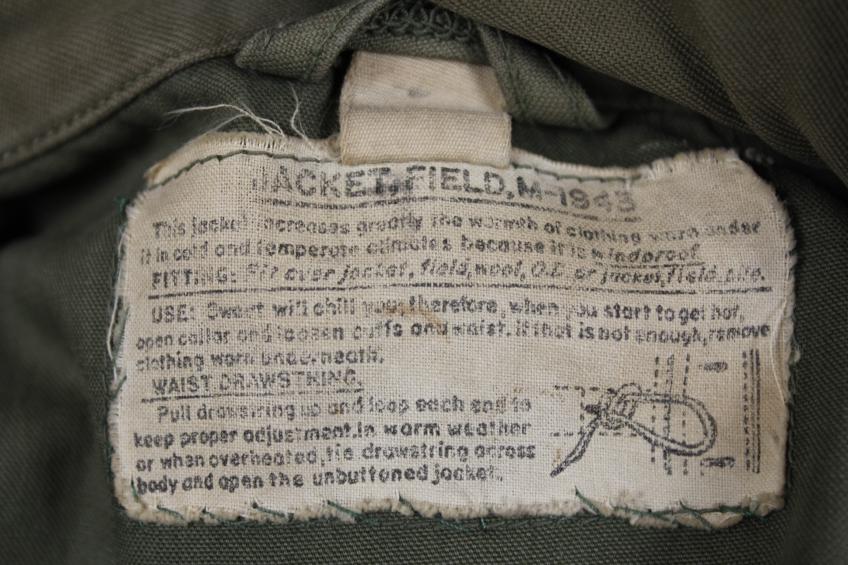 JACKET, FIELD, M-1943
This jacket increases greatly the warmth of clothing worn under
it in cold and temperate climates because it is windproof.
FITTING: Fit over jacket, field, wool, O.D. or jacket, field, pile.
USE: Sweat will chill you; therefore, when you start to get hot,
open collar and loosen cuffs and waist. If that is not enough, remove
clothing worn underneath.
WAIST DRAWSTRING.
Pull drawstring up and loop each end to
keep proper adjustment. In warm weather
or when overheated, tie drawstring across
body and open the unbuttoned jacket.